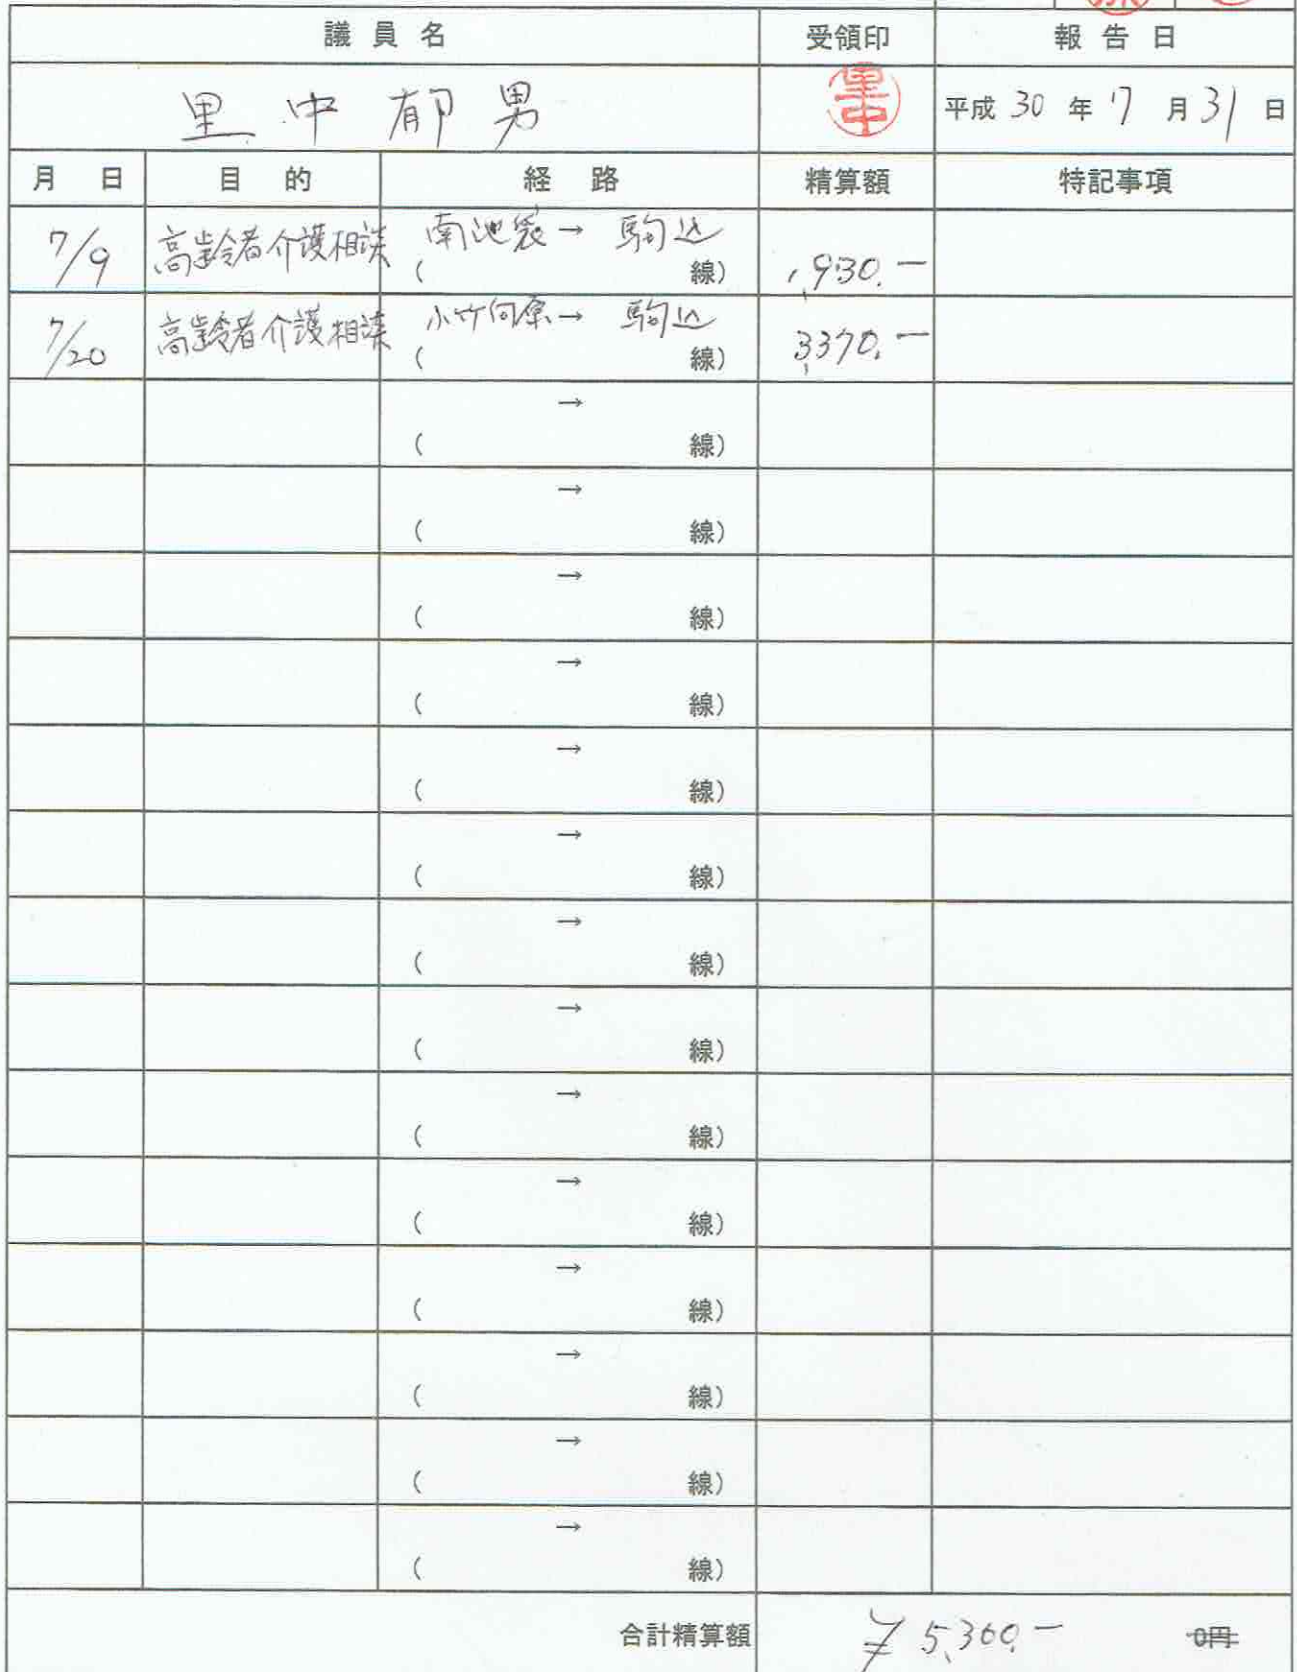 議員名 受領印 報告日
里中郁男 里中 平成 30 年 7 月 31 日
月日 目的 経路 精算額 特記事項
7/9 高齢者介護相談 南池袋→ 駒込
( 線) 1,930.-
7/20 高齢者介護相談 小竹向原→ 駒込
( 線) 3,370.-
→
( 線)
→
( 線)
→
( 線)
→
( 線)
→
( 線)
→
( 線)
→
( 線)
→
( 線)
→
( 線)
→
( 線)
→
( 線)
→
( 線)
→
( 線)
→
( 線)
合計精算額 ¥5,300.- 0円